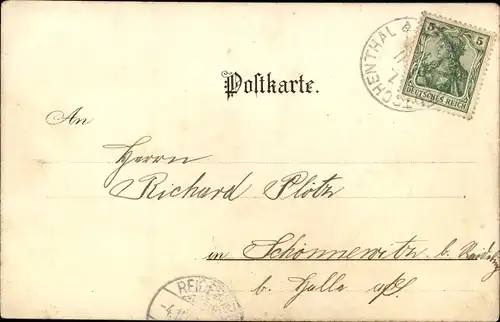 TSCHENTHAL
5 5
DEUTSCHES REICH
Postkarte.
An
Herrn
Richard Plötz
in Schönnewitz b. Reideburg
b. Halle a/S.
REIDEBURG